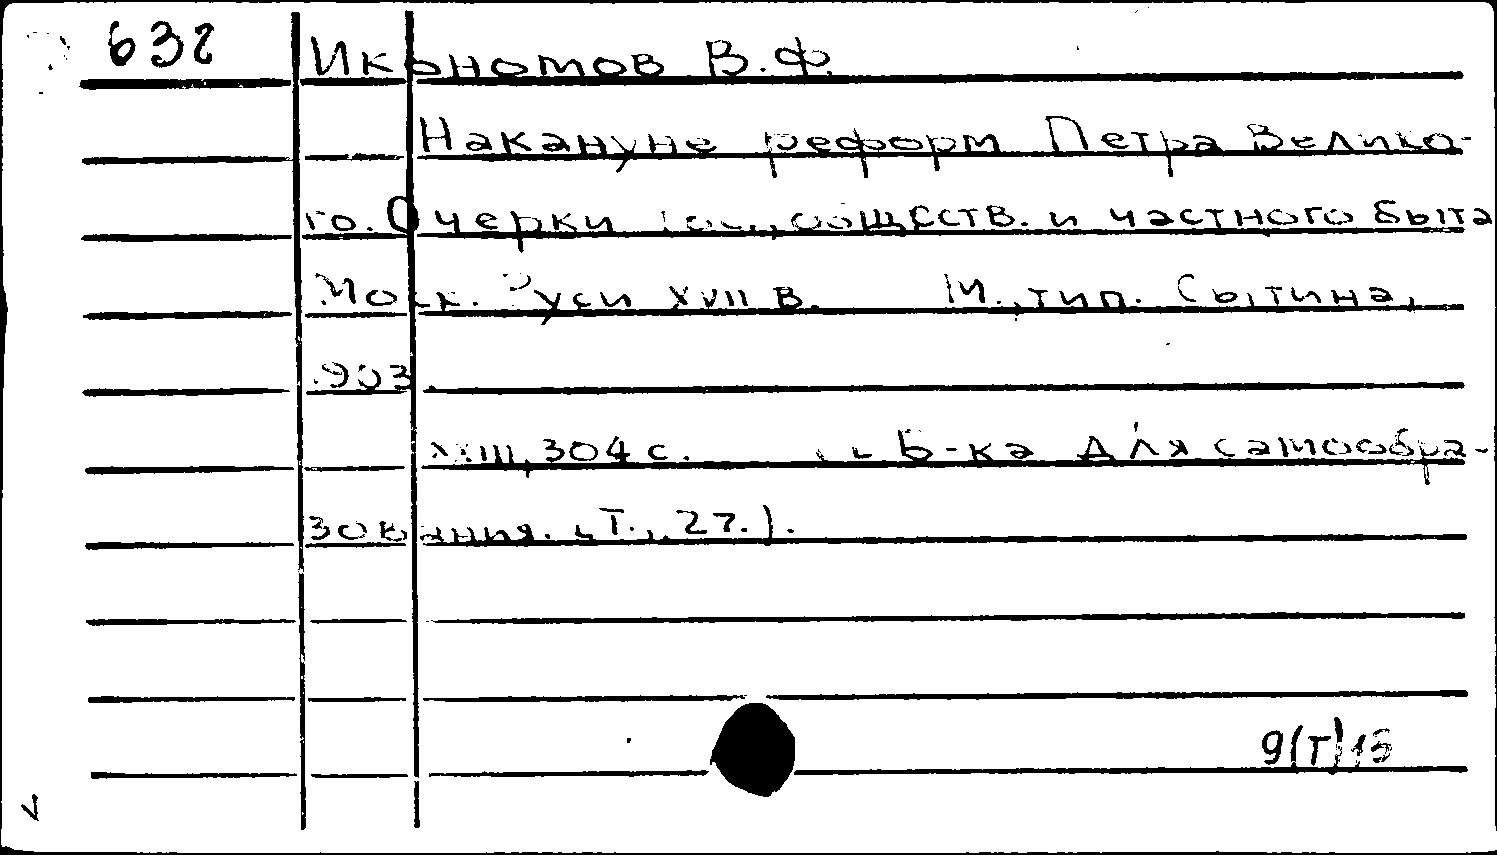 632 Икономов В.Ф.
Накануне реформ Петра Велико-
го. Очерки гос., обществ. и частного быта
Моск. Руси XVII в. М., тип. Сытина,
903.
XXIII, 304 с. Б-ка для самообра-
зования. Т. 27.).
9(Т)15